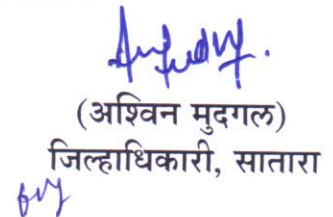 (अश्विन मुदगल)
जिल्हाधिकारी, सातारा